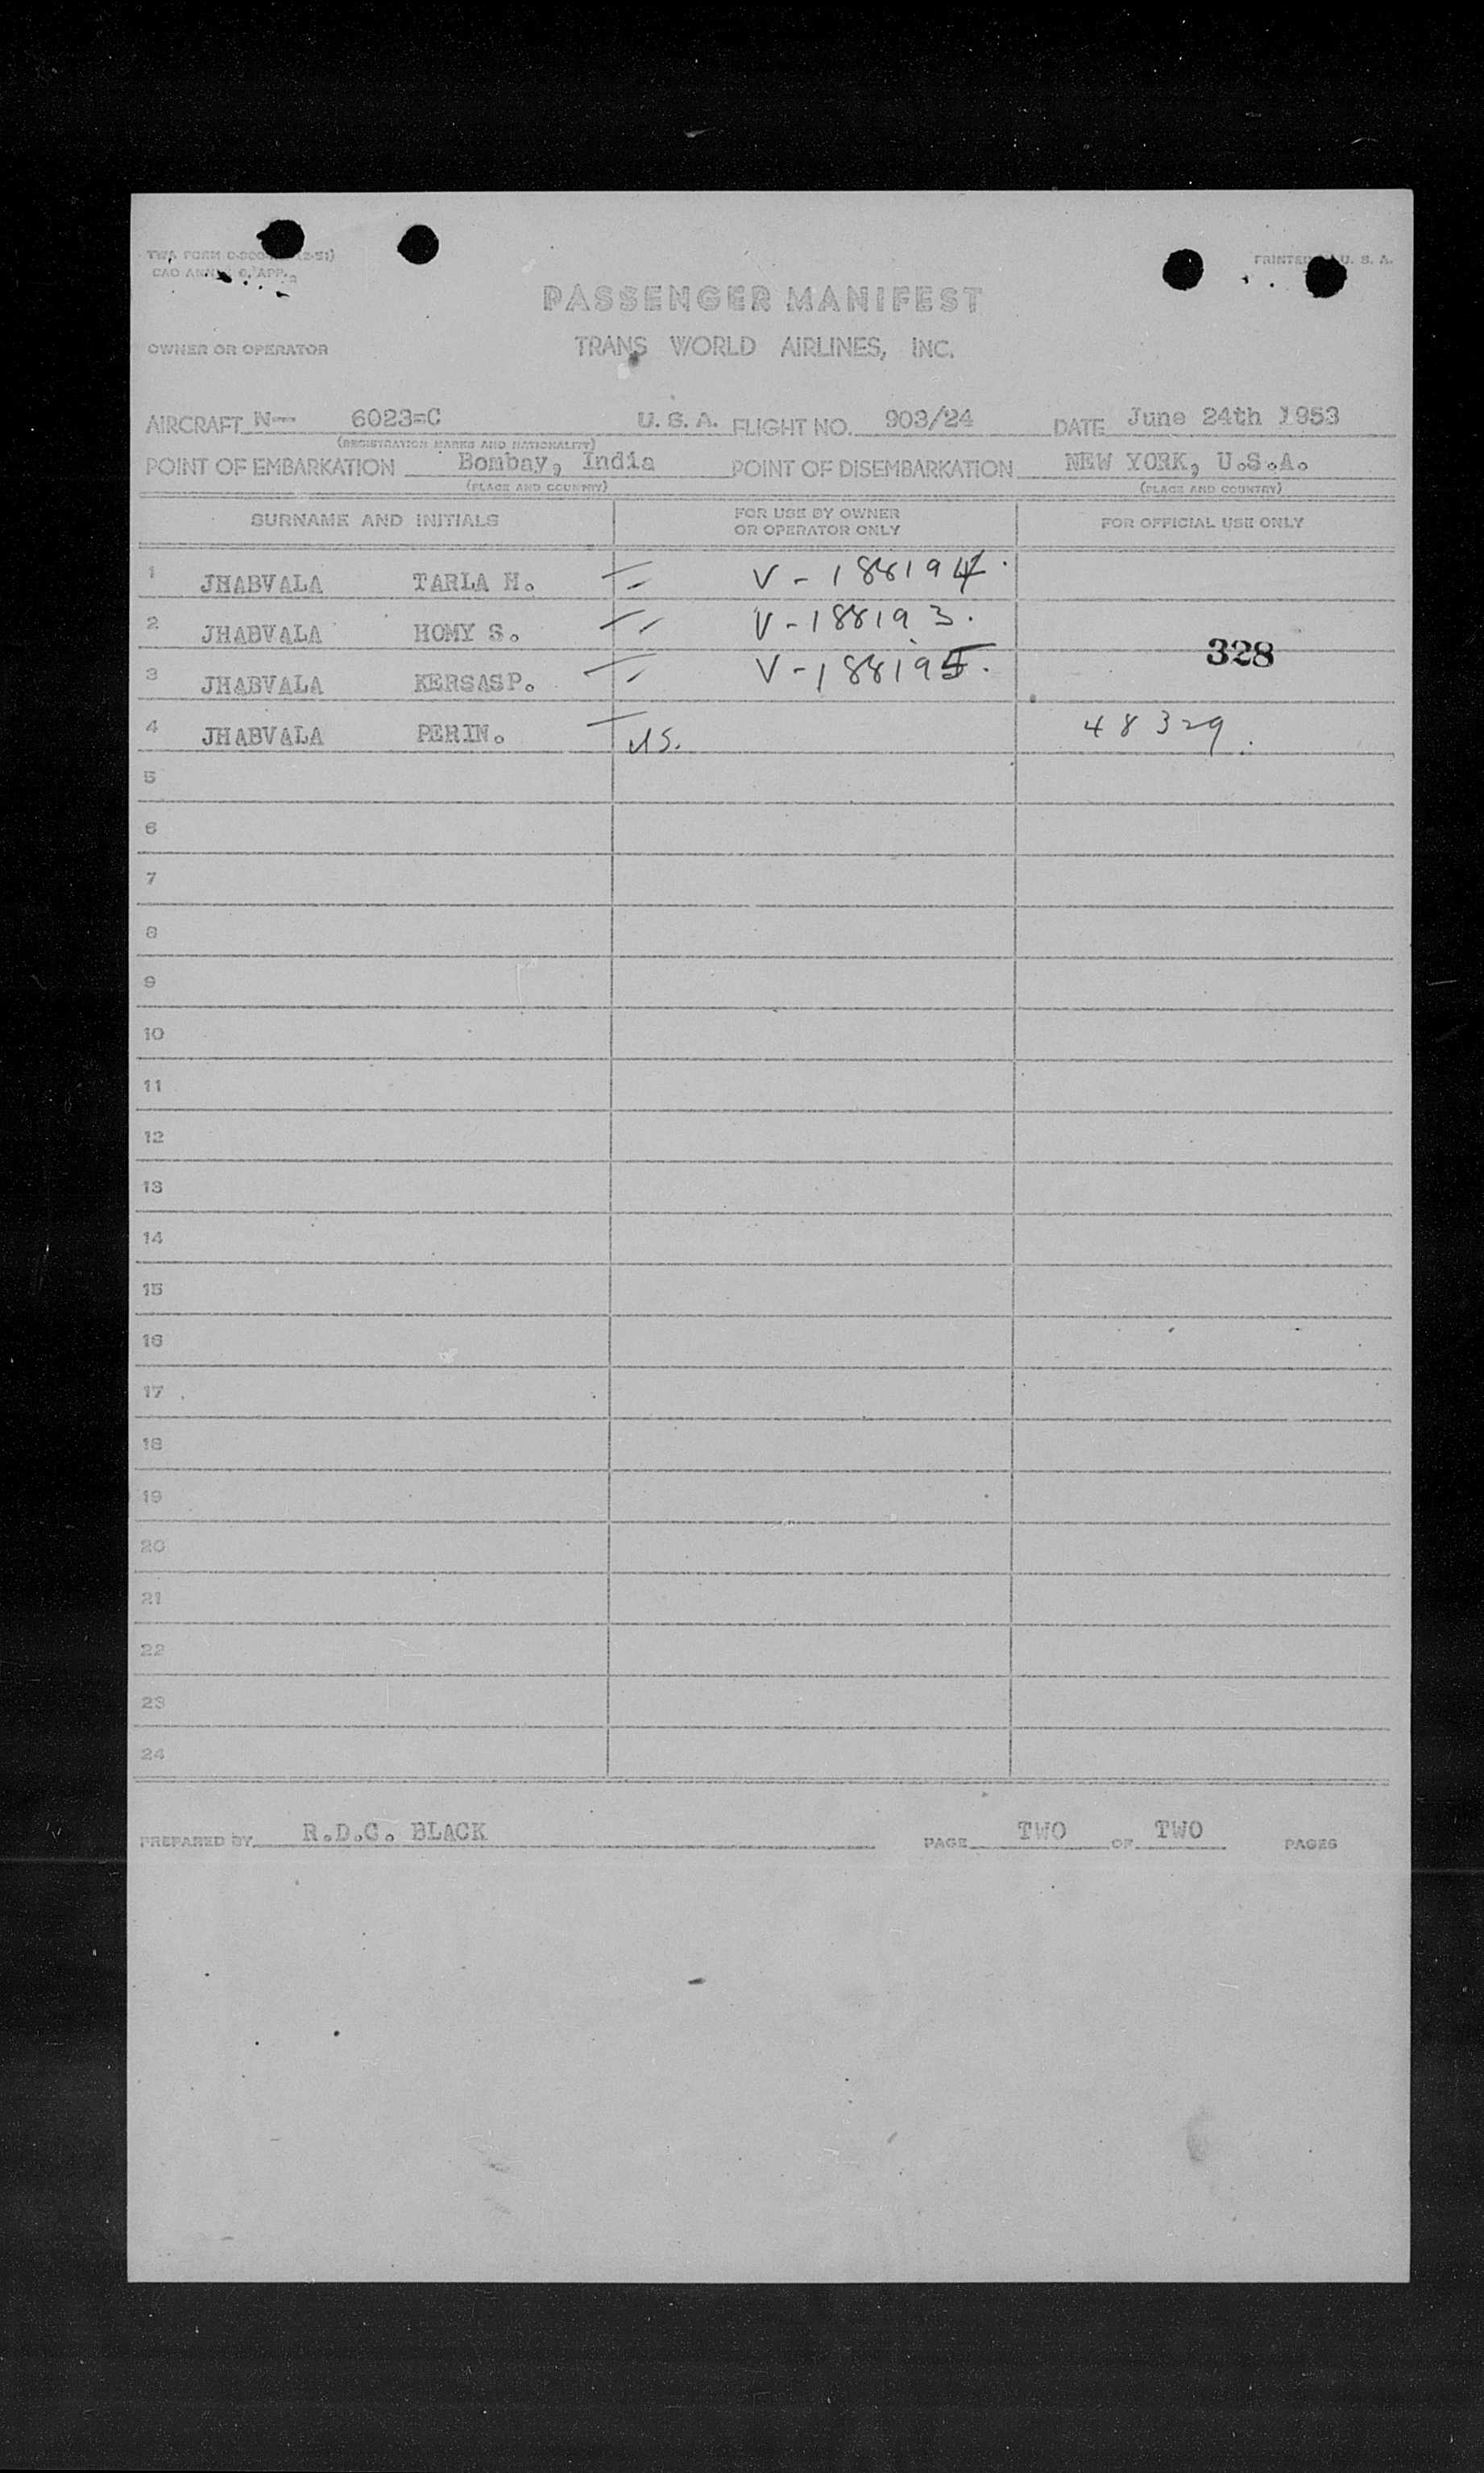 TWA FORM (2-51)
PRINTED U. S. A.
PASSENGER MANIFEST
OWNER OR OPERATOR TRANS WORLD AIRLINES, INC.
AIRCRAFT N— 6023=C U. S. A. FLIGHT NO. 903/24 DATE June 24th 1953
(REGISTRATION MARKS AND NATIONALITY)
POINT OF EMBARKATION Bombay, India POINT OF DISEMBARKATION NEW YORK, U.S.A.
(PLACE AND COUNTRY) (PLACE AND COUNTRY)
SURNAME AND INITIALS FOR USE BY OWNER OR OPERATOR ONLY FOR OFFICIAL USE ONLY
1 JHABVALA TARLA H. V-188194.
2 JHABVALA HOMY S. V-188193.
328
3 JHABVALA KERSASP. V-188195.
4 JHABVALA PERIN. US. 48329.
5
6
7
8
9
10
11
12
13
14
15
16
17
18
19
20
21
22
23
24
PREPARED BY R.D.C. BLACK PAGE TWO OF TWO PAGES